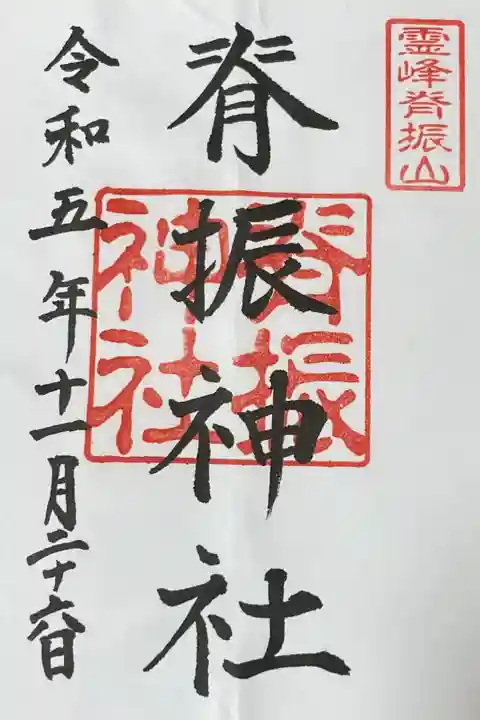 霊峰脊振山
脊振神社
脊振
神社
令和五年十一月二十六日